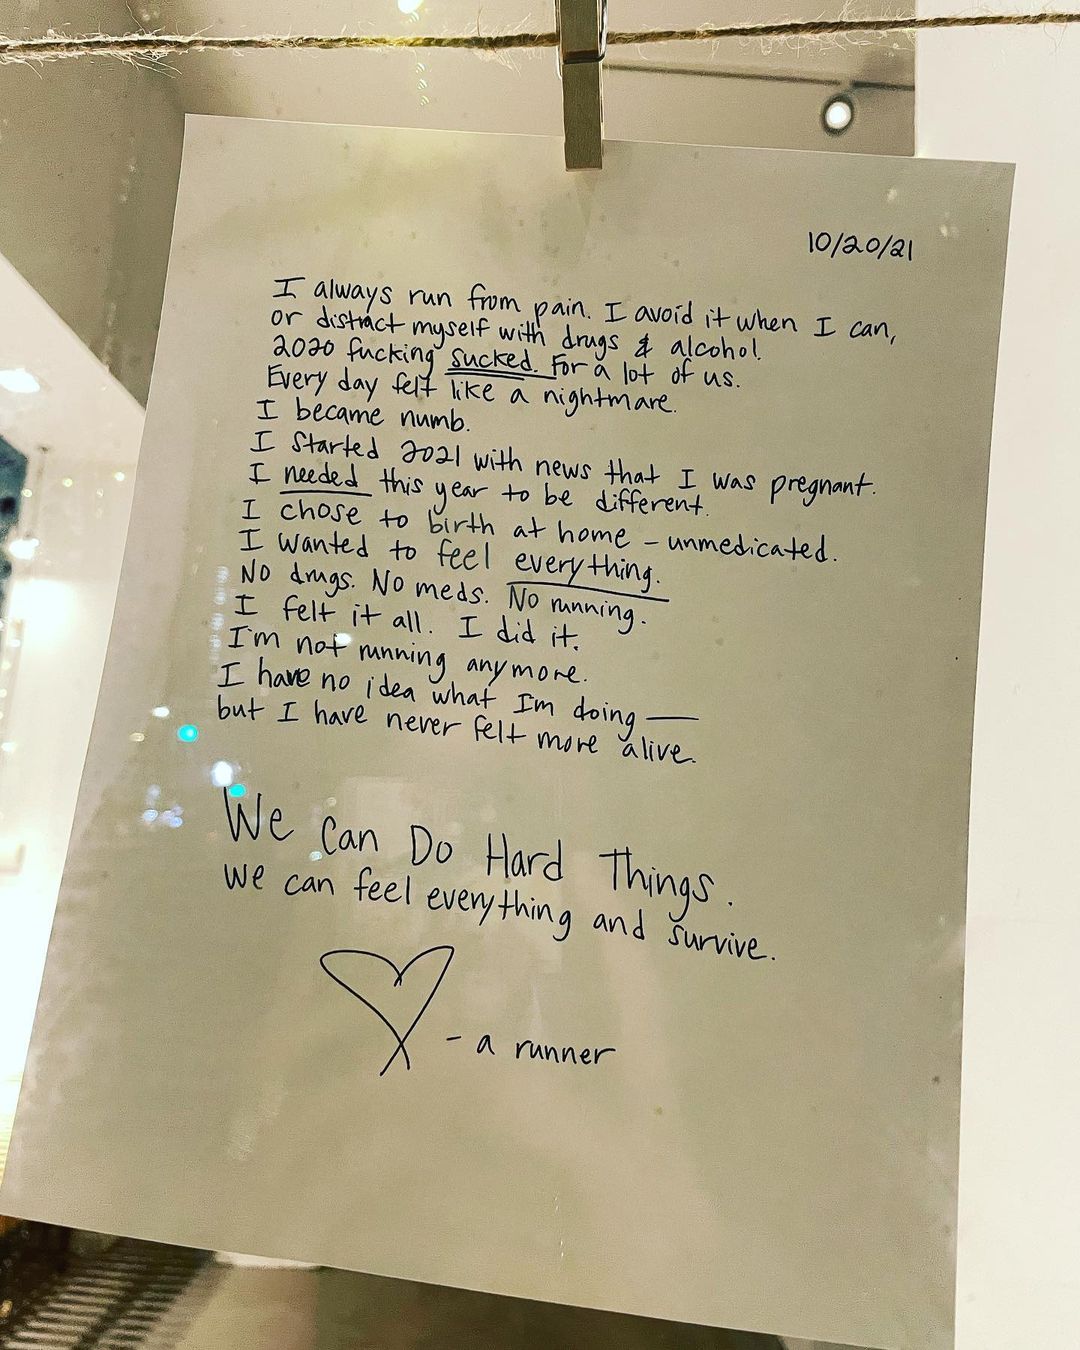 10/20/21
I always run from pain. I avoid it when I can,
or distract myself with drugs & alcohol.
2020 fucking sucked. For a lot of us.
Every day felt like a nightmare.
I became numb.
I started 2021 with news that I was pregnant.
I needed this year to be different.
I chose to birth at home - unmedicated.
I wanted to feel everything.
No drugs. No meds. No running.
I felt it all. I did it.
I'm not running anymore.
I have no idea what I'm doing —
but I have never felt more alive.
We Can Do Hard Things.
We can feel everything and survive.
- a runner